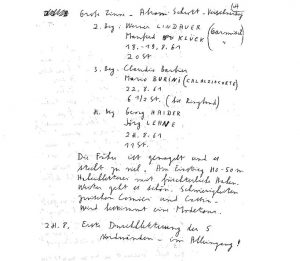 Große Zinne - Abram-Schrott-
2. Beg: Werner LINDAUER (Garmisch)
Manfred KLÜCK "
18.-19.8.61
20 St
3. Beg. Claudio Barbier
Mario BURINI (CALALZIACORTE)
22.8.61
6 1/2 St. (bis Ringband)
4. Beg Georg HAIDER
Jörg LEHNE
24.8.61
11 St.
Die Führe ist genagelt und es
steckt zu viel. Am Einstieg 40-50 m
mit fürchterlich Haken.
Weiter geht es schön. Schwierigkeiten
zwischen Comici und Cassin.
Wird bestimmt ein Modetour.
24.8. Erste Durchkletterung der 5
Nordwänden - im Alleingang!